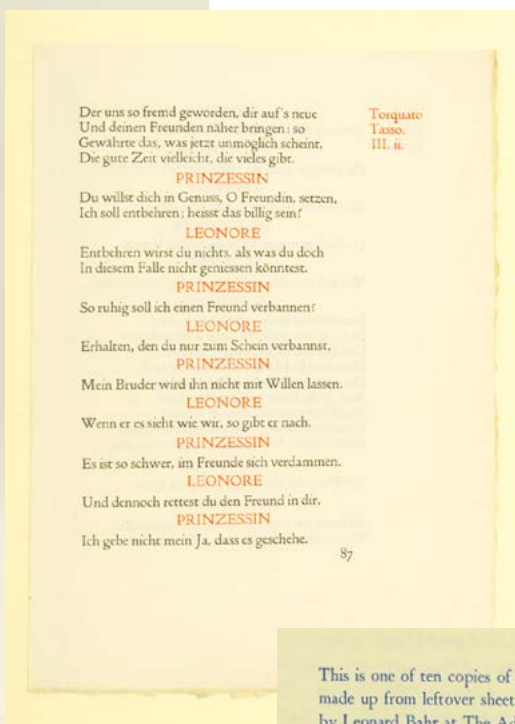 Der uns so fremd geworden, dir auf's neue
Und deinen Freunden näher bringen: so
Gewährte das, was jetzt unmöglich scheint,
Die gute Zeit vielleicht, die vieles gibt.
Torquato
Tasso.
III. ii.
PRINZESSIN
Du willst dich in Genuss, O Freundin, setzen,
Ich soll entbehren; heisst das billig sein?
LEONORE
Entbehren wirst du nichts, als was du doch
In diesem Falle nicht geniessen könntest.
PRINZESSIN
So ruhig soll ich einen Freund verbannen?
LEONORE
Erhalten, den du nur zum Schein verbannst.
PRINZESSIN
Mein Bruder wird ihn nicht mit Willen lassen.
LEONORE
Wenn er es sieht wie wir, so gibt er nach.
PRINZESSIN
Es ist so schwer, im Freunde sich verdammen.
LEONORE
Und dennoch rettest du den Freund in dir.
PRINZESSIN
Ich gebe nicht mein Ja, dass es geschehe.
87
This is one of ten copies of
made up from leftover sheet
by Leonard Bahr at The Ad